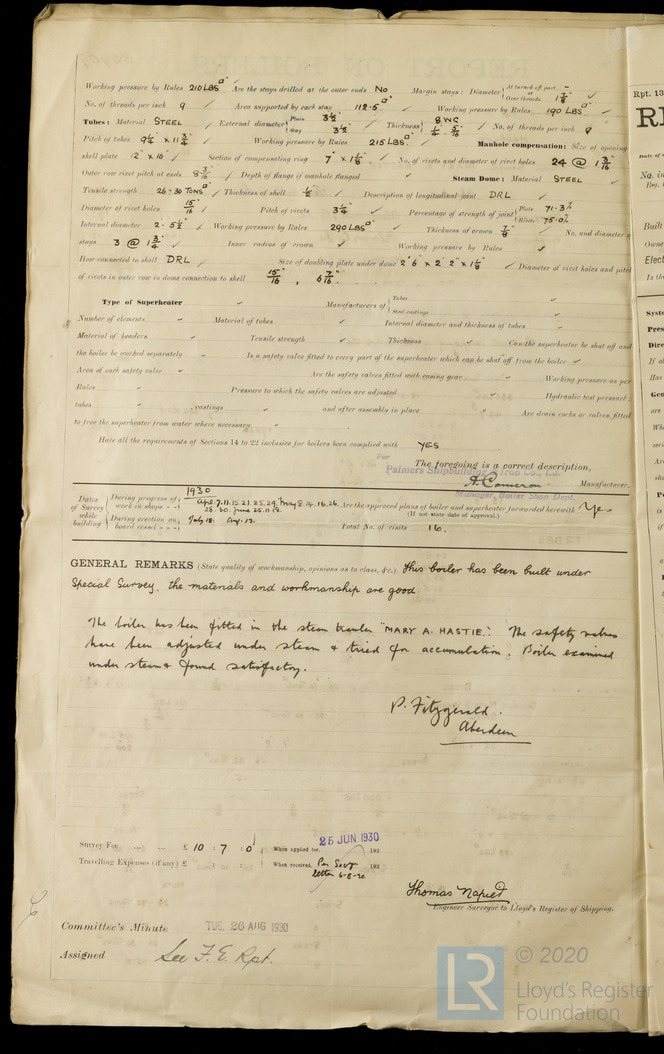 Working pressure by Rules 210 LBS □" Are the stays drilled at the outer ends No Margin stays: Diameter { At turned off part, – or Over threads 1 7/8"
No. of threads per inch 9 Area supported by each stay 112.5 □" Working pressure by Rules 190 LBS □"
Tubes: Material STEEL External diameter { Plain 3½" Stay 3½" Thickness { 8 WG ¼" 5/16" No. of threads per inch 9
Pitch of tubes 9¼" x 11¾" Working pressure by Rules 215 LBS □" Manhole compensation: Size of opening
shell plate 12" x 16" Section of compensating ring 7" x 1 1/8" No. of rivets and diameter of rivet holes 24 @ 1 3/16"
Outer row rivet pitch at ends 8 3/16" Depth of flange if manhole flanged Steam Dome: Material STEEL
Tensile strength 26-30 TONS □" Thickness of shell ½" Description of longitudinal joint DRL
Diameter of rivet holes 15/16" Pitch of rivets 3¼" Percentage of strength of joint { Plate 71.3% Rivets 75.0%
Internal diameter 2' 5½" Working pressure by Rules 290 LBS □" Thickness of crown 7/8" No. and diameter of
stays 3 @ 1¾" Inner radius of crown Working pressure by Rules
How connected to shell DRL Size of doubling plate under dome 2' 6" x 2' 2" x 1 1/8" Diameter of rivet holes and pitch
of rivets in outer row in dome connection to shell 15/16", 6 7/16"
Type of Superheater Manufacturers of { Tubes Steel castings
Number of elements Material of tubes Internal diameter and thickness of tubes
Material of headers Tensile strength Thickness Can the superheater be shut off and
the boiler be worked separately Is a safety valve fitted to every part of the superheater which can be shut off from the boiler
Area of each safety valve Are the safety valves fitted with easing gear Working pressure as per
Rules Pressure to which the safety valves are adjusted Hydraulic test pressure:
tubes castings and after assembly in place Are drain cocks or valves fitted
to free the superheater from water where necessary
Have all the requirements of Sections 14 to 22 inclusive for boilers been complied with YES
For The foregoing is a correct description,
Palmers Shipbuilding & Iron Co., Ld.
A. Cameron Manufacturer.
Manager, Boiler Shop Dept.
1930
Dates of Survey while building { During progress of work in shops - - Apr. 7.11.15.21.25.29. May 8.14.16.26. Are the approved plans of boiler and superheater forwarded herewith Yes
28.30. June 25.11.18. (If not state date of approval.)
During erection on board vessel - - - July 18. Aug. 13. Total No. of visits 16.
GENERAL REMARKS (State quality of workmanship, opinions as to class, &c.) This boiler has been built under
Special Survey, the materials and workmanship are good.
The boiler has been fitted in the steam trawler "MARY A. HASTIE". The safety valves
have been adjusted under steam & tried for accumulation. Boiler examined
under steam & found satisfactory.
P. Fitzgerald.
Aberdeen
Survey Fee ... ... £ 10 : 7 : 0 When applied for, 25 JUN 1930 192
Travelling Expenses (if any) £ : : When received, Per Secy 192
letter 6-8-30
Thomas Napier
Engineer Surveyor to Lloyd's Register of Shipping.
Committee's Minute TUE. 26 AUG 1930
Assigned See F. E. Rpt.
Rpt. 13
Date of
No. in
Reg.
Built
Owne
Elect
Is th
Syste
Pres
Dire
If al
Has
Gen
are
LR © 2020
Lloyd's Register
Foundation